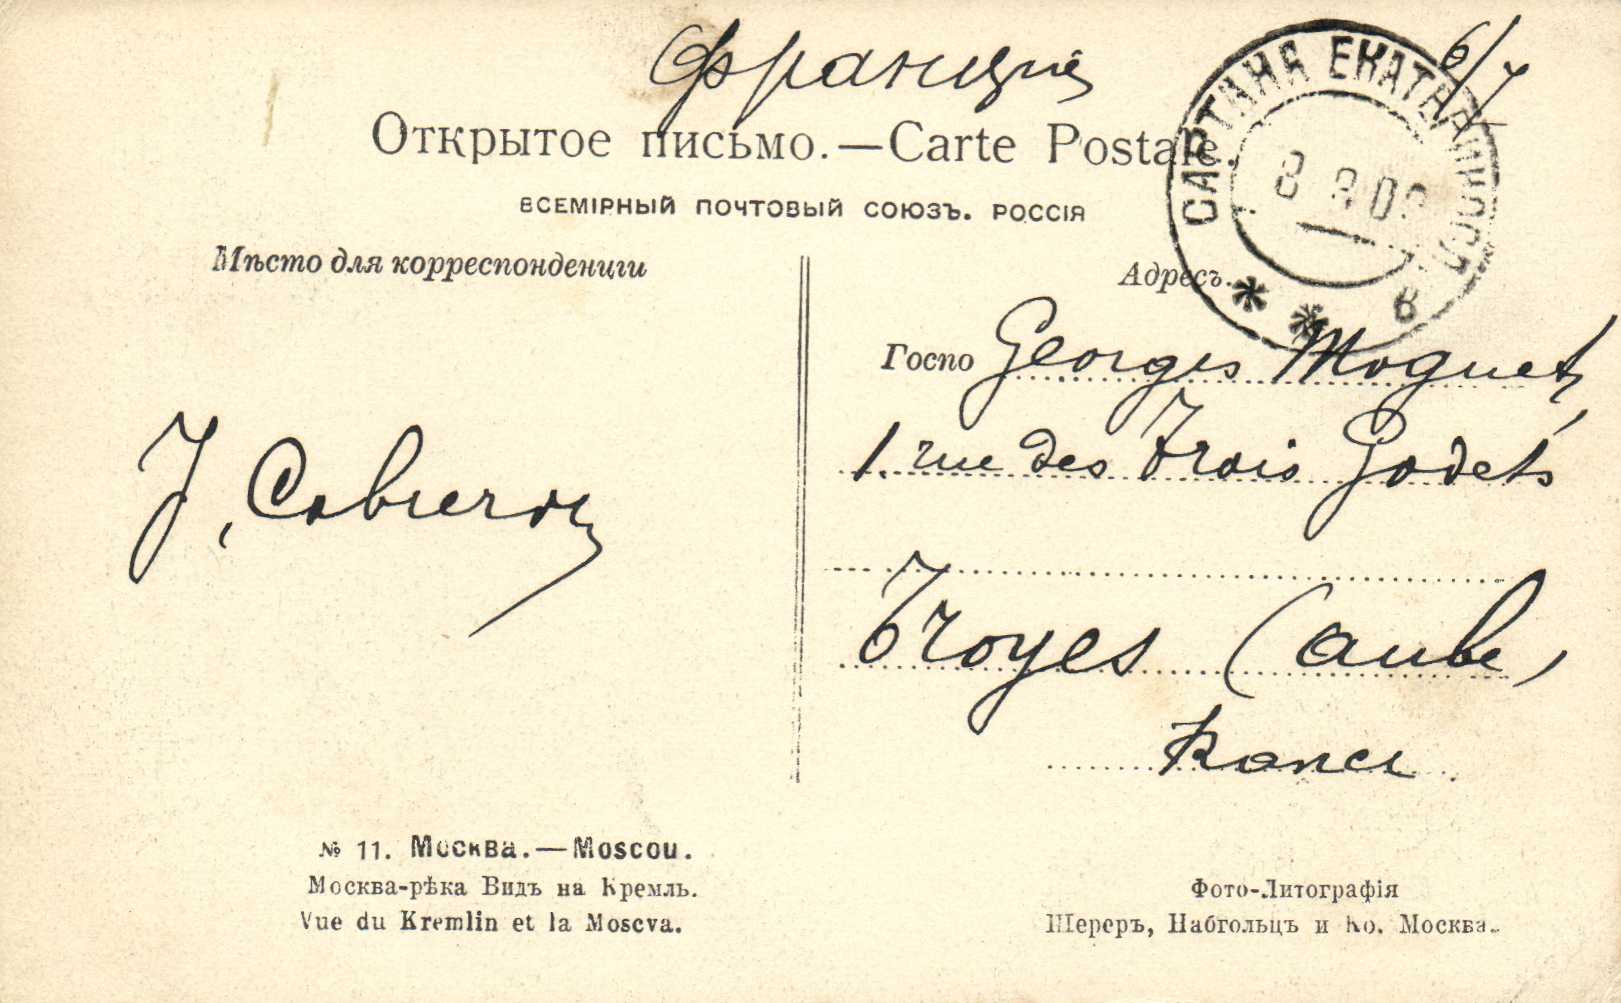 Франція
6/7
Открытое письмо.—Carte Postale.
ВСЕМІРНЫЙ ПОЧТОВЫЙ СОЮЗЪ. РОССІЯ
САРТАНА ЕКАТ
8 8 0
в
Мѣсто для корреспонденціи
Адресъ.
Госпо Georges Moguet,
1. rue des Trois Godets
J.
Troyes (Aube)
France
№ 11. Москва.—Moscou.
Москва-рѣка Видъ на Кремль.
Vue du Kremlin et la Moscva.
Фото-Литографія
Шереръ, Набгольцъ и Ко. Москва.